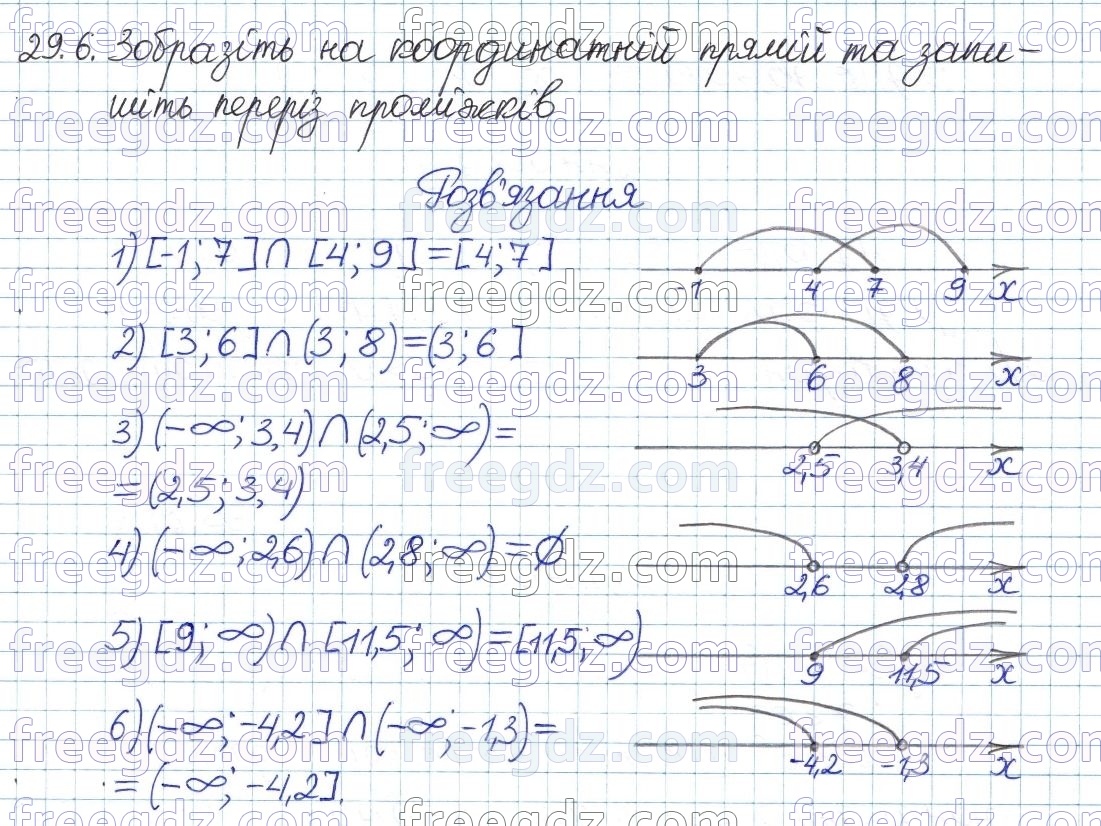 29.6. Зобразіть на координатній прямій та запи-
шіть переріз проміжків
Розв'язання
1) [-1; 7] ∩ [4; 9] = [4; 7]
-1 4 7 9 x
2) [3; 6] ∩ (3; 8) = (3; 6]
3 6 8 x
3) (-∞; 3,4) ∩ (2,5; ∞) =
= (2,5; 3,4)
2,5 3,4 x
4) (-∞; 2,6) ∩ (2,8; ∞) = ∅
2,6 2,8 x
5) [9; ∞) ∩ [11,5; ∞) = [11,5; ∞)
9 11,5 x
6) (-∞; -4,2] ∩ (-∞; -1,3) =
= (-∞; -4,2].
-4,2 -1,3 x
freegdz.com